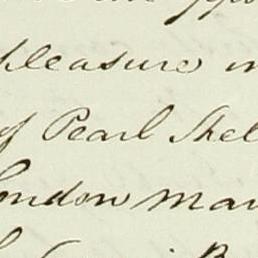 pleasure in
of Pearl Shel
London Mar